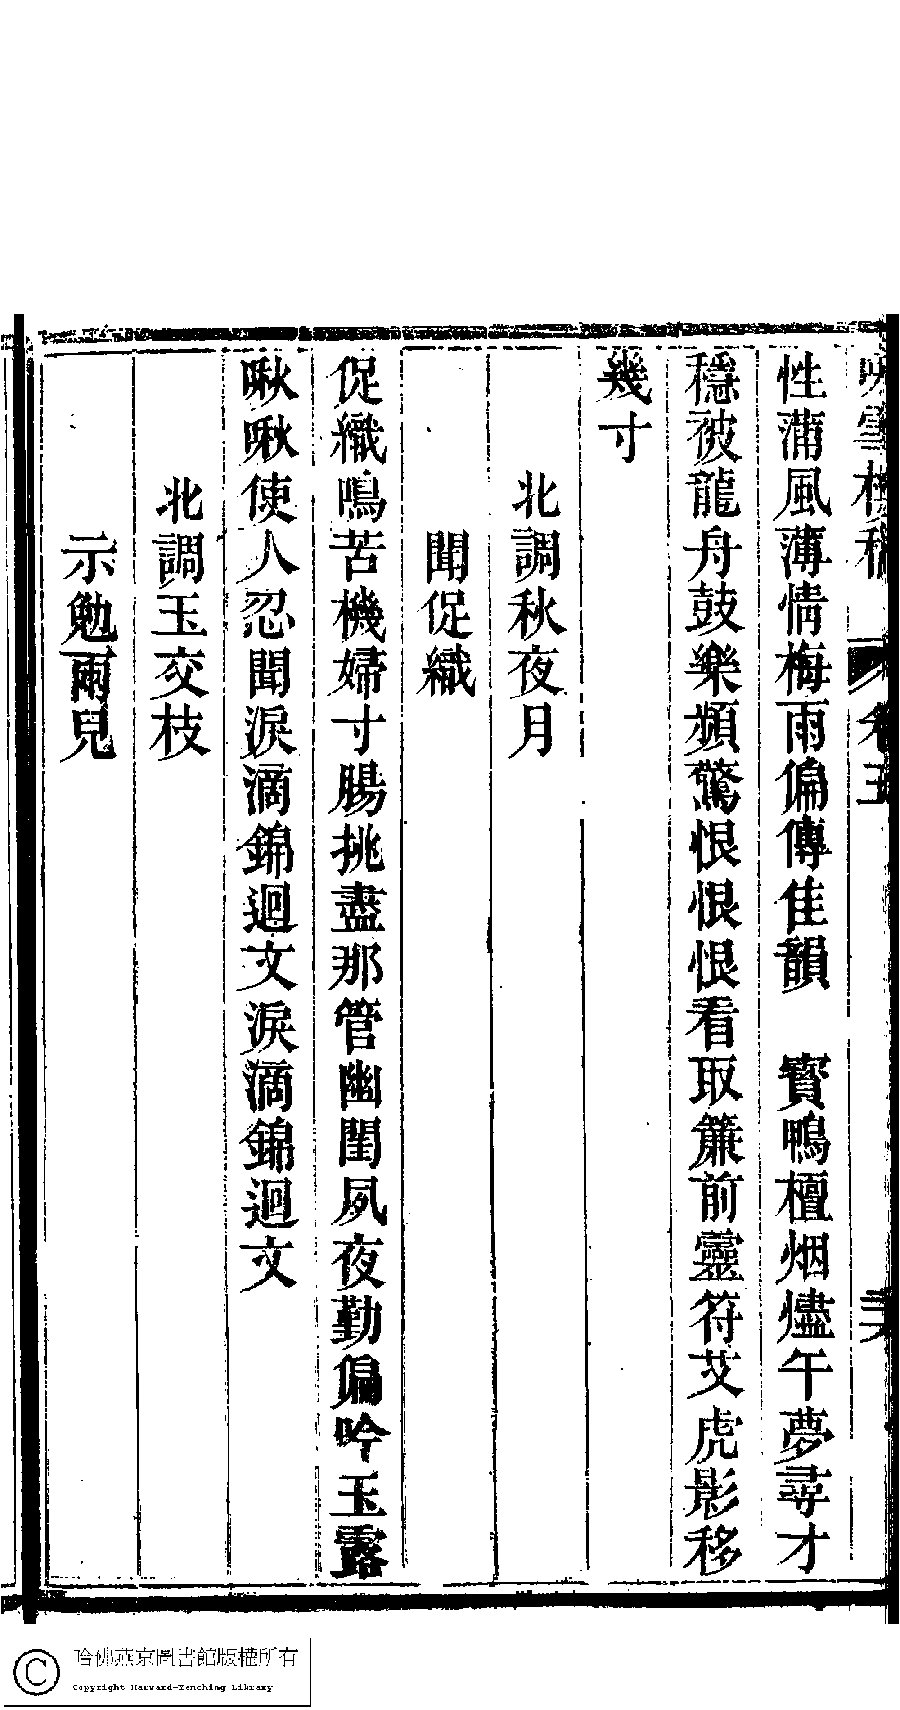 性蒲風薄情梅雨偏傳佳韻　寳鴨檀烟燼午夢尋才
穩被龍舟鼓樂頻驚恨恨恨看取簾前靈符艾虎影移
幾寸
北調秋夜月
聞促織
促織鳴苦機婦寸腸挑盡那管幽閨夙夜勤偏吟玉露
啾啾使人忍聞淚滴錦迴文淚滴錦迴文
北調玉交枝
示勉兩兒
哈佛燕京圖書館版權所有
Copyright Harvard-Yenching Library